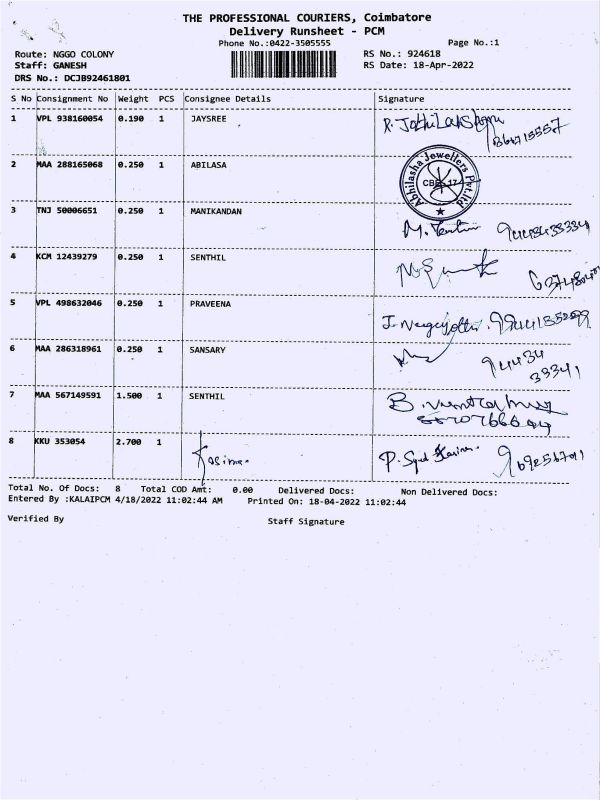 THE PROFESSIONAL COURIERS, Coimbatore
Delivery Runsheet - PCM
Phone No.:0422-3505555 Page No.:1
Route: NGGO COLONY RS No.: 924618
Staff: GANESH RS Date: 18-Apr-2022
DRS No.: DCJB92461801
S No Consignment No Weight PCS Consignee Details Signature
1 VPL 938160054 0.190 1 JAYSREE
2 MAA 288165068 0.250 1 ABILASA
Abhilasha Jewellers Pvt.Ltd
3 TNJ 50006651 0.250 1 MANIKANDAN
4 KCM 12439279 0.250 1 SENTHIL
5 VPL 498632046 0.250 1 PRAVEENA
6 MAA 286318961 0.250 1 SANSARY
7 MAA 567149591 1.500 1 SENTHIL
8 KKU 353054 2.700 1
Total No. Of Docs: 8 Total COD Amt: 0.00 Delivered Docs: Non Delivered Docs:
Entered By :KALAIPCM 4/18/2022 11:02:44 AM Printed On: 18-04-2022 11:02:44
Verified By Staff Signature